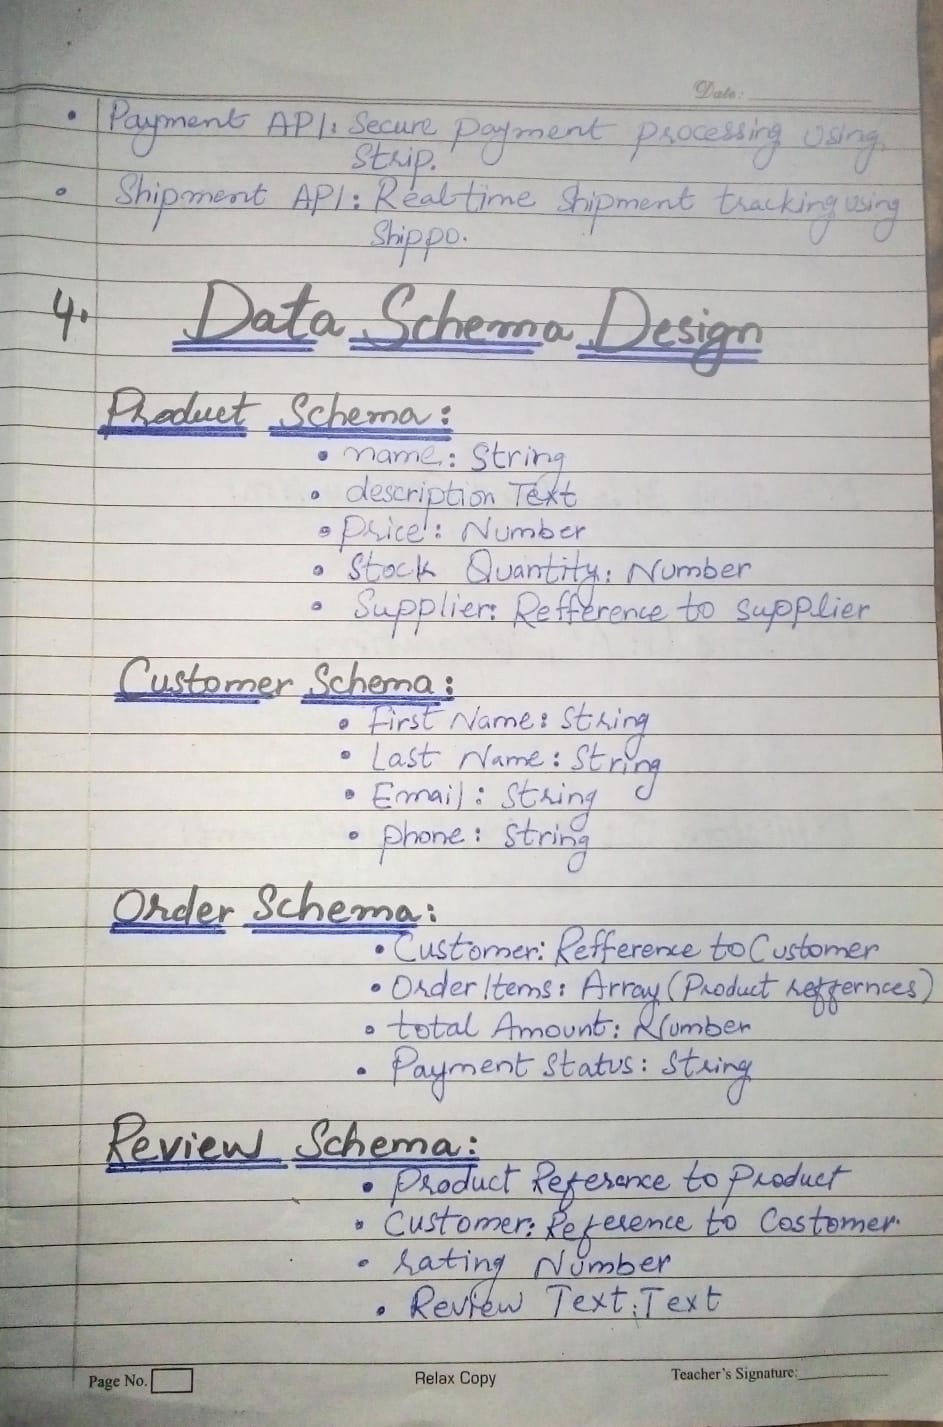 Date:
• Payment API: Secure payment processing using
Strip.
• Shipment API: Real-time shipment tracking using
Shippo.
4. Data Schema Design
Product Schema:
• name: String
• description Text
• Price: Number
• Stock Quantity: Number
• Supplier: Refference to supplier
Customer Schema:
• First Name: String
• Last Name: String
• Email: String
• phone: String
Order Schema:
• Customer: Refference to Customer
• Order Items: Array (Product reffernces)
• total Amount: Number
• Payment Status: String
Review Schema:
• Product Reference to Product
• Customer: Reference to Costomer.
• rating Number
• Review Text: Text
Page No.
Relax Copy
Teacher's Signature: